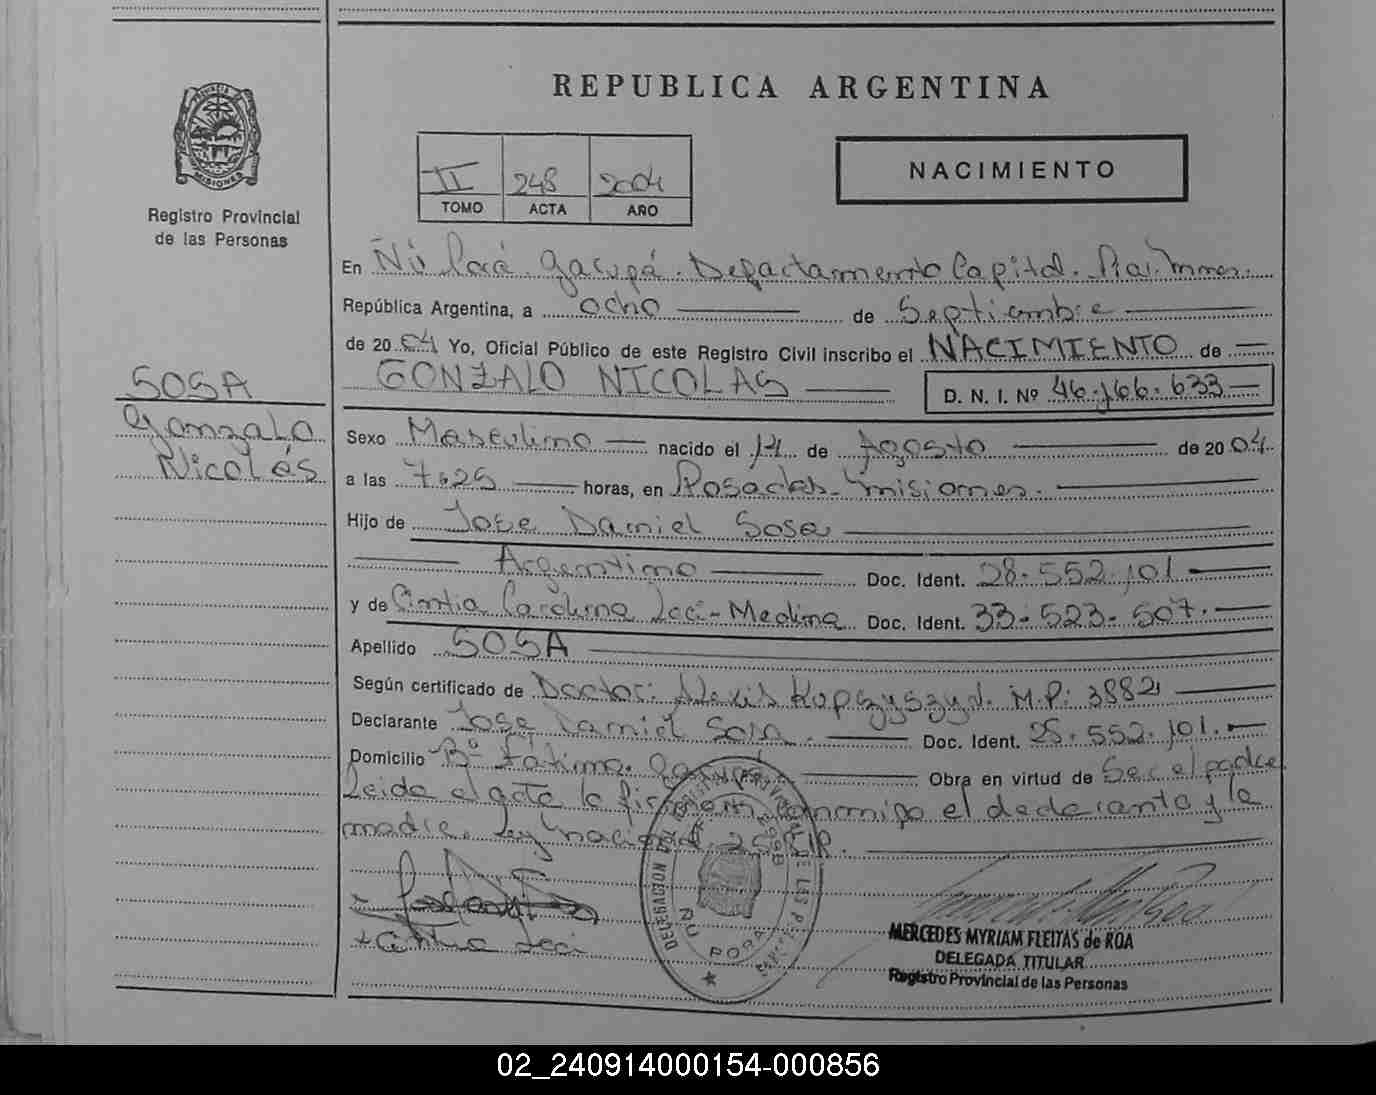 REPUBLICA ARGENTINA
PROVINCIA DE MISIONES
Registro Provincial
de las Personas
II 248 2004
TOMO ACTA AÑO
NACIMIENTO
En Ñu Porá. Garupá. Departamento Capital.
República Argentina, a ocho de Septiembre
de 2004 Yo, Oficial Público de este Registro Civil inscribo el NACIMIENTO de
GONZALO NICOLAS D. N. I. Nº 46.166.633
SOSA
Gonzalo
Nicolás
Sexo Masculino nacido el 14 de Agosto de 2004
a las 7:25 horas, en Posadas. Misiones.
Hijo de Jose Daniel Sosa
Argentino Doc. Ident. 28.552.101
y de Cintia Carolina Leci-Medina Doc. Ident. 33.523.507.
Apellido SOSA
Según certificado de Doctor: Alexis M.P: 3882
Declarante Jose Daniel Sosa. Doc. Ident. 28.552.101.
Domicilio Bº Fátima. Garupá Obra en virtud de Ser el padre
Leida el acta la firman conmigo el declarante y la
madre. Ley nacional
Cintia Leci
DELEGACION DEL REGISTRO PROVINCIAL DE LAS PERSONAS
ÑU PORA
MERCEDES MYRIAM FLEITAS de ROA
DELEGADA TITULAR
Registro Provincial de las Personas
02_240914000154-000856